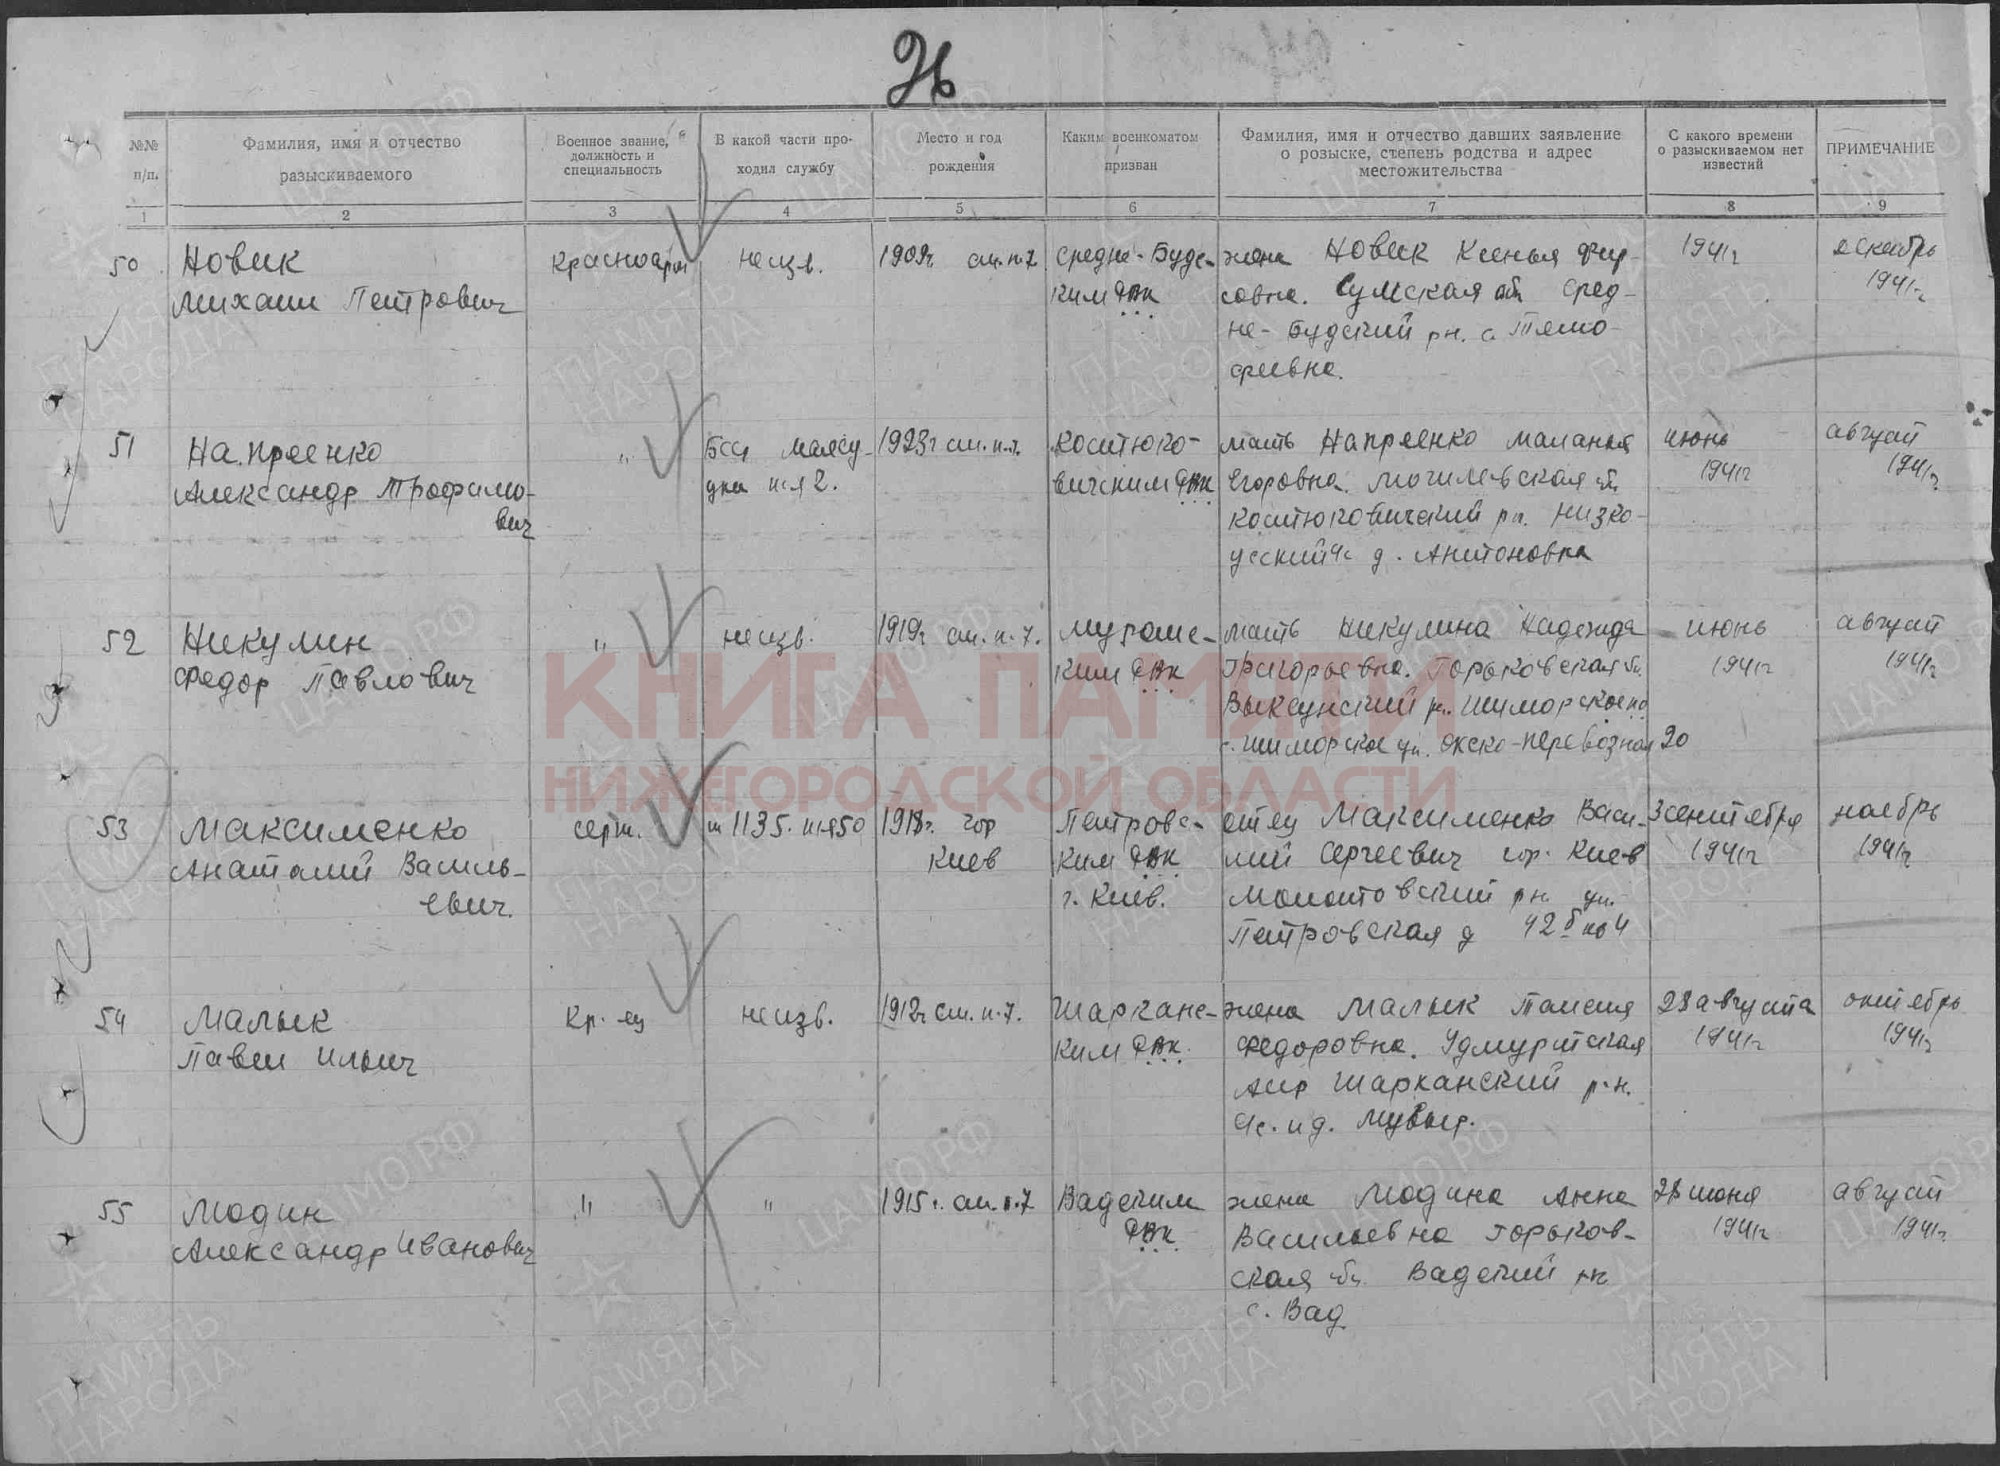 26
№№ п/п.
Фамилия, имя и отчество разыскиваемого
Военное звание, должность и специальность
В какой части проходил службу
Место и год рождения
Каким военкоматом призван
Фамилия, имя и отчество давших заявление о розыске, степень родства и адрес местожительства
С какого времени о разыскиваемом нет известий
ПРИМЕЧАНИЕ
1 2 3 4 5 6 7 8 9
50 Новик красноарм неизв. 1909г см. п. 7 Средне-Будс- жена Новик Ксенья Фир- 1941г декабрь
Михаил Петрович ким РВК совна. Сумская обл Сред- 1941г
не-Будский рн. с
51 Напреенко " 1923г см. п. 7. Костюко- мать Напреенко Маланья июнь август
Александр Трофимо- вичским РВК Егоровна. Могилевская обл 1941г 1941г
вич Костюковичский рн. Низко-
усский с д. Антоновка
52 Никулин " неизв. 1919г см. п. 7. Муромс- мать Никулина Надежда июнь август
Федор Павлович ким РВК Григорьевна. Горьковская обл. 1941г 1941г
Выксунский рн. Шиморское по
с. Шиморское ул. Окско-перевозная 20
53 Максименко серж. 1135. п/я 50 1918г. гор Петровс- отец Максименко Васи- 3 сентября ноябрь
Анатолий Василь- Киев ким РВК лий Сергеевич гор. Киев 1941г 1941г
евич. г. Киев. Молотовский рн. ул.
Петровская д 42
54 Малык Кр-ец неизв. 1912г см. п. 7. Шарканс- жена Малык Таисия 28 августа октябрь
Павел Ильич ким РВК Федоровна. Удмуртская 1941г 1941г
Шарканский р-н.
55 Модин " " 1915г. см. п. 7 Вадским жена Модина Анна 28 июня август
Александр Иванович РВК Васильевна Горьков- 1941г 1941г
ская обл. Вадский рн
с. Вад
КНИГА ПАМЯТИ
НИЖЕГОРОДСКОЙ ОБЛАСТИ
ПАМЯТЬ НАРОДА
ЦАМО.РФ